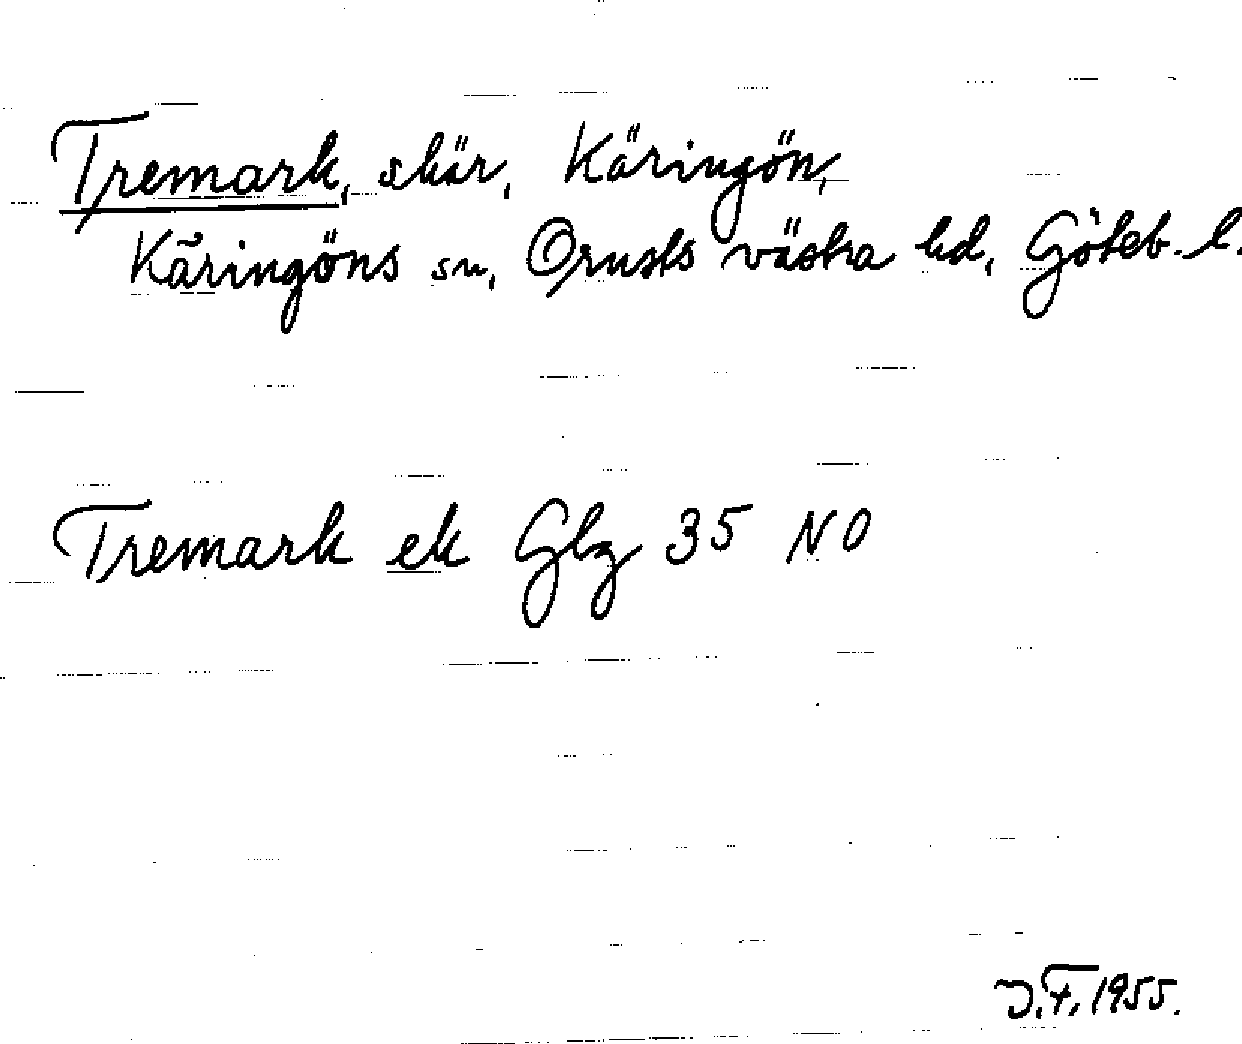 Tremark, skär, Käringön,
Käringöns sn, Orusts västra hd, Göteb. l.
Tremark ek Glz 35 NO
J.F. 1955.